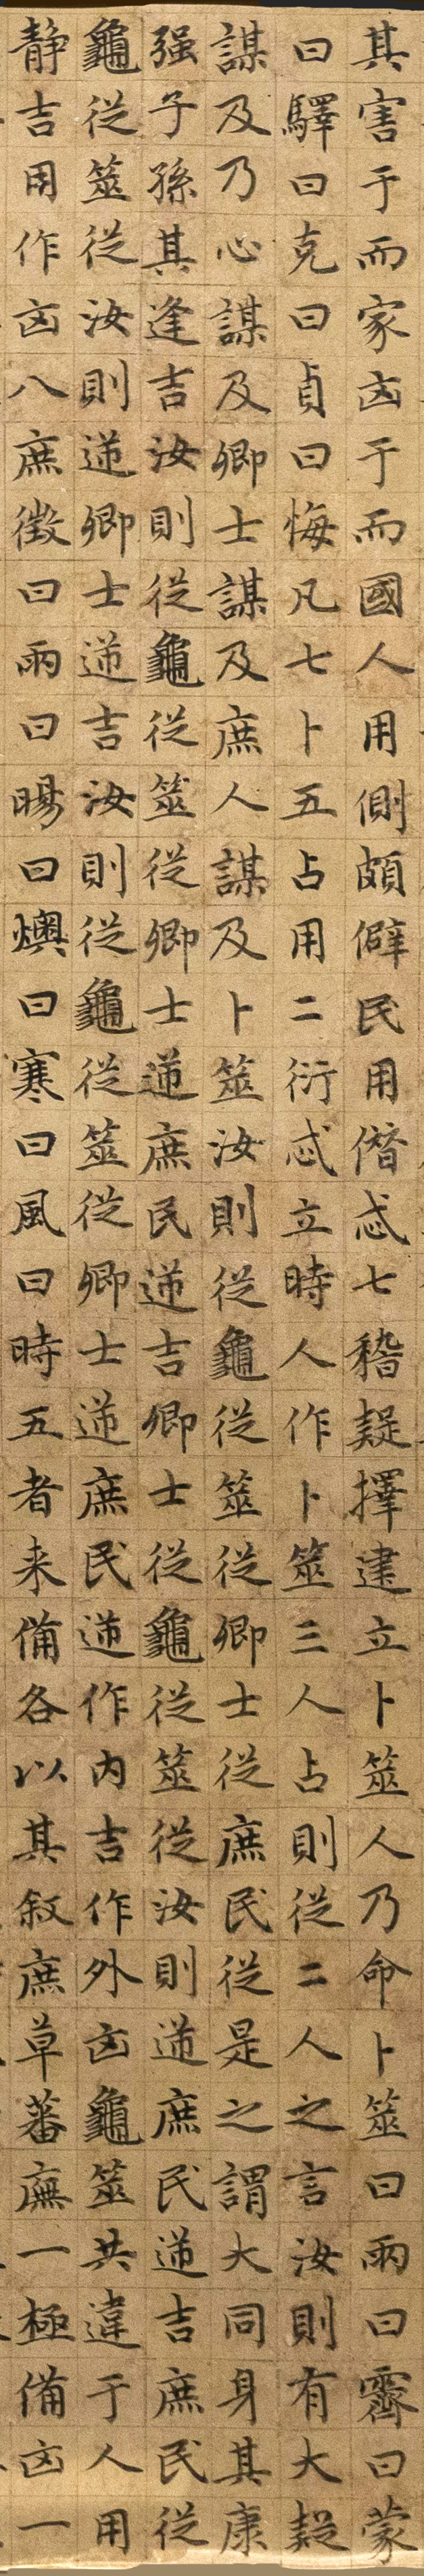 其害于而家凶于而國人用側頗僻民用僭忒七稽疑擇建立卜筮人乃命卜筮曰雨曰霽曰蒙
曰驛曰克曰貞曰悔凡七卜五占用二衍忒立時人作卜筮三人占則從二人之言汝則有大疑
謀及乃心謀及卿士謀及庶人謀及卜筮汝則從龜從筮從卿士從庶民從是之謂大同身其康
强子孫其逢吉汝則從龜從筮從卿士逆庶民逆吉卿士從龜從筮從汝則逆庶民逆吉庶民從
龜從筮從汝則逆卿士逆吉汝則從龜從筮從卿士逆庶民逆作內吉作外凶龜筮共違于人用
静吉用作凶八庶徵曰雨曰暘曰燠曰寒曰風曰時五者来備各以其叙庶草蕃廡一極備凶一